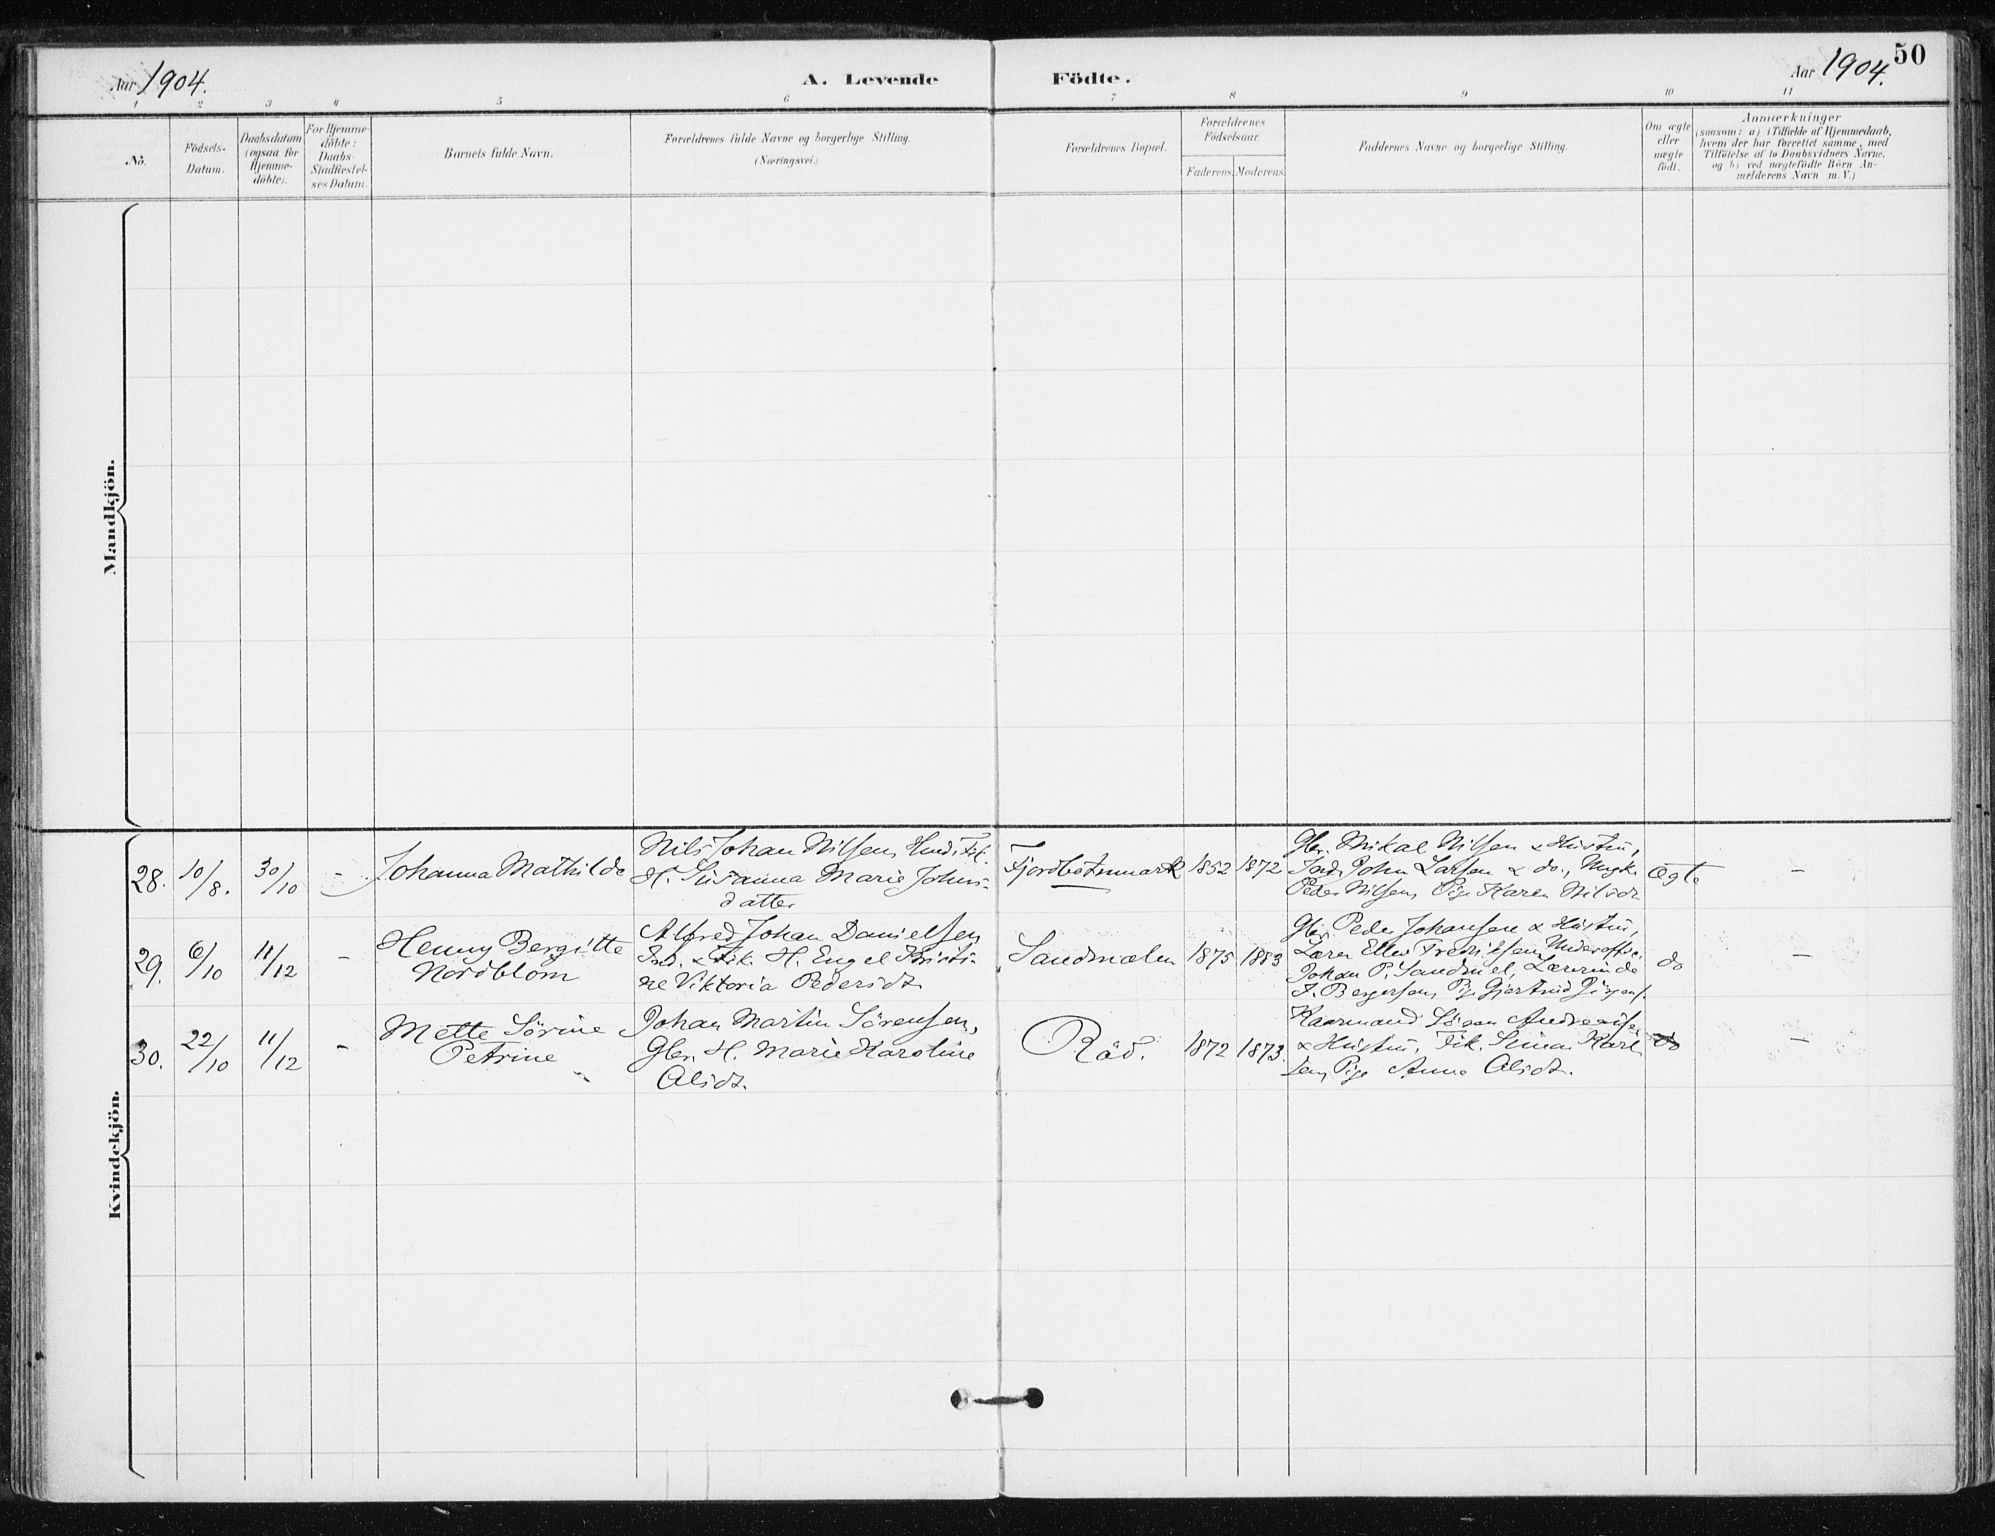 50
Aar 1904.
A. Levende Födte.
Aar 1904.
1 2 3 4 5 6 7 8 9 10 11
No.
Födsels-
Datum.
Daabsdatum
(ogsaa for
Hjemme-
döbte).
For Hjemme-
döbte:
Daabs-
Stadfæstel-
ses Datum
Barnets fulde Navn.
Forældrenes fulde Navne og borgerlige Stilling.
(Næringsvei.)
Forældrenes Bopæl.
Forældrenes
Födselsaar.
Faderens. Moderens.
Faddernes Navne og borgerlige Stilling.
Om ægte
eller
uægte
födt.
Anmærkninger
(saasom: a) i Tilfælde af Hjemmedaab,
hvem der har forrettet samme, med
Tilföielse af to Daabsvidners Navne,
og b) ved uægtefödte Börn An-
melderens Navn m. V.)
Mandkjön.
Kvindekjön.
28. 10/8. 30/10 - Johanna Mathilde
Nils Johan Nilsen,
H. Susanna Marie Johns-
datter
Fjordbotnmark 1852 1872
Gbr. Mikal Nilsen & Hustru,
Ind. John Larsen & do., Ungk.
Peder Nilsen, Pige Karen Nilsdt.
Ægte -
29. 6/10 11/12 -
Henny Bergitte
Nordblom
Alfred Johan Danielsen
Ind. & Fisk. H. Engel Kristi-
ne Viktoria Pedersdt.
Sandmælen 1875 1883
Gbr. Peder Johansen & Hustru,
Lærer Fredriksen, Underoffic.
Johan P. Sandmel, Lærerinde
Bergersen, Pige Gjertrud
do -
30. 22/10 11/12 -
Mette Sörine
Petrine
Johan Martin Sörensen,
Gbr. H. Marie Karoline
Olsdt.
Röd. 1872 1873.
Kaarmand Sören Andreassen
& Hustru, Fisk. Karl-
sen, Pige Anna Olsdt.
do -